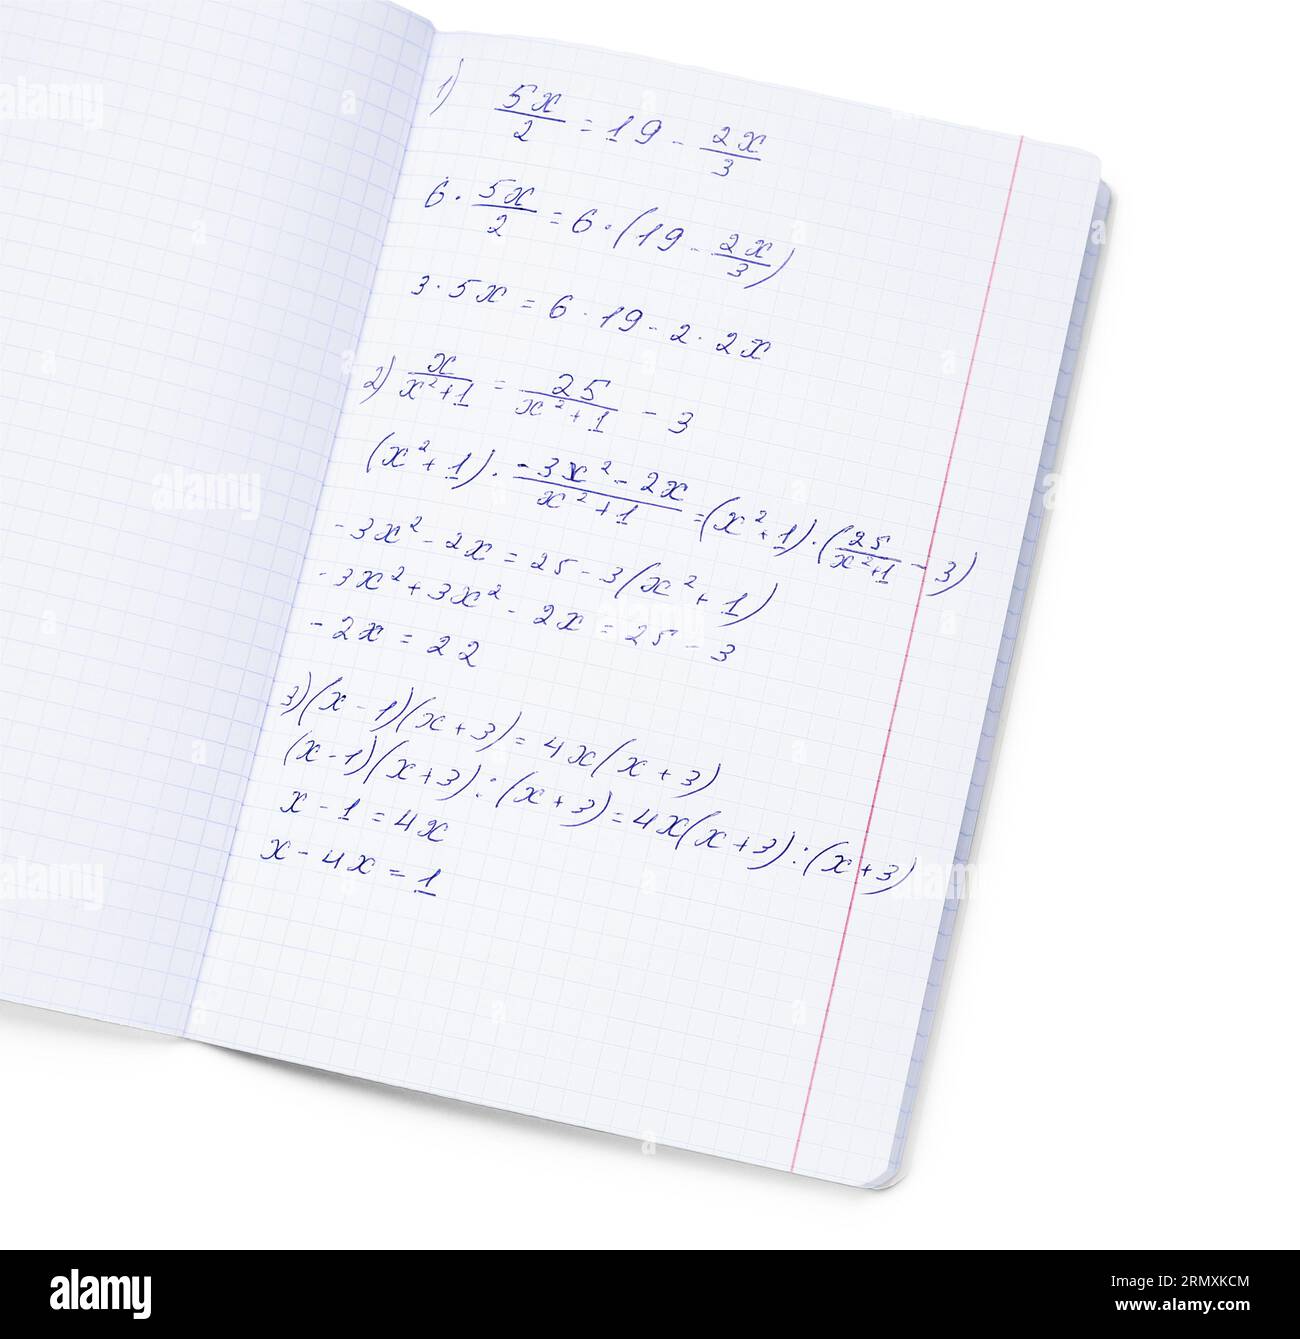 1) 5x/2 = 19 - 2x/3
6 · 5x/2 = 6 · (19 - 2x/3)
3 · 5x = 6 · 19 - 2 · 2x
2) x/(x²+1) = 25/(x²+1) - 3
(x²+1) · (-3x²-2x)/(x²+1) = (x²+1) · (25/(x²+1) - 3)
-3x² - 2x = 25 - 3(x²+1)
-3x² + 3x² - 2x = 25 - 3
-2x = 22
3) (x-1)(x+3) = 4x(x+3)
(x-1)(x+3) : (x+3) = 4x(x+3) : (x+3)
x - 1 = 4x
x - 4x = 1
alamy
Image ID: 2RMXKCM
www.alamy.com